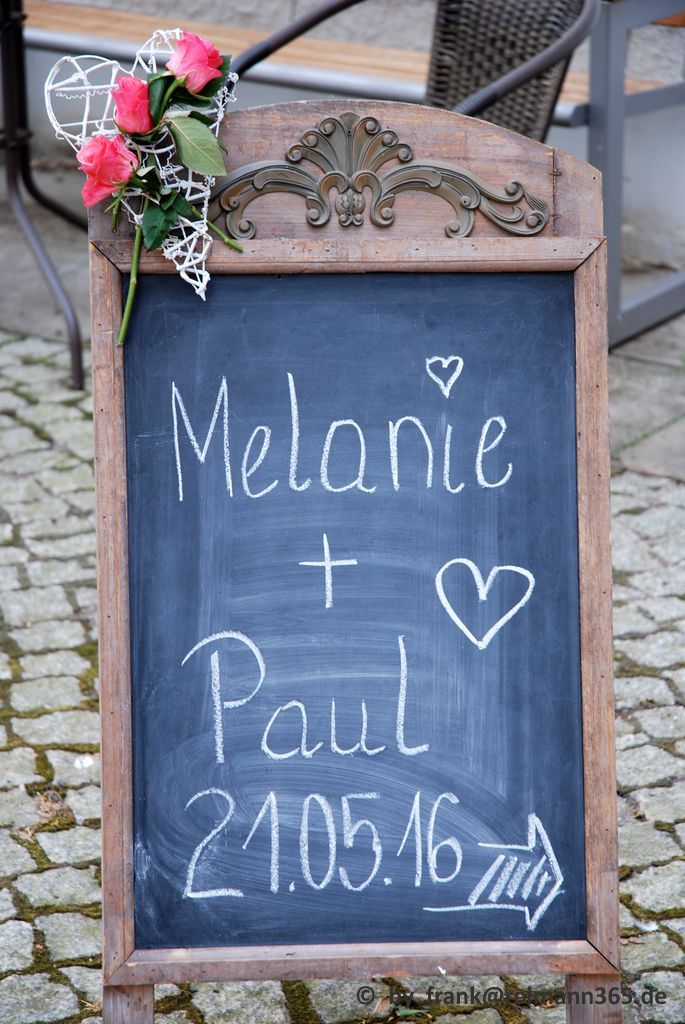 Melanie
+
Paul
21.05.16
© by frank@reimann365.de